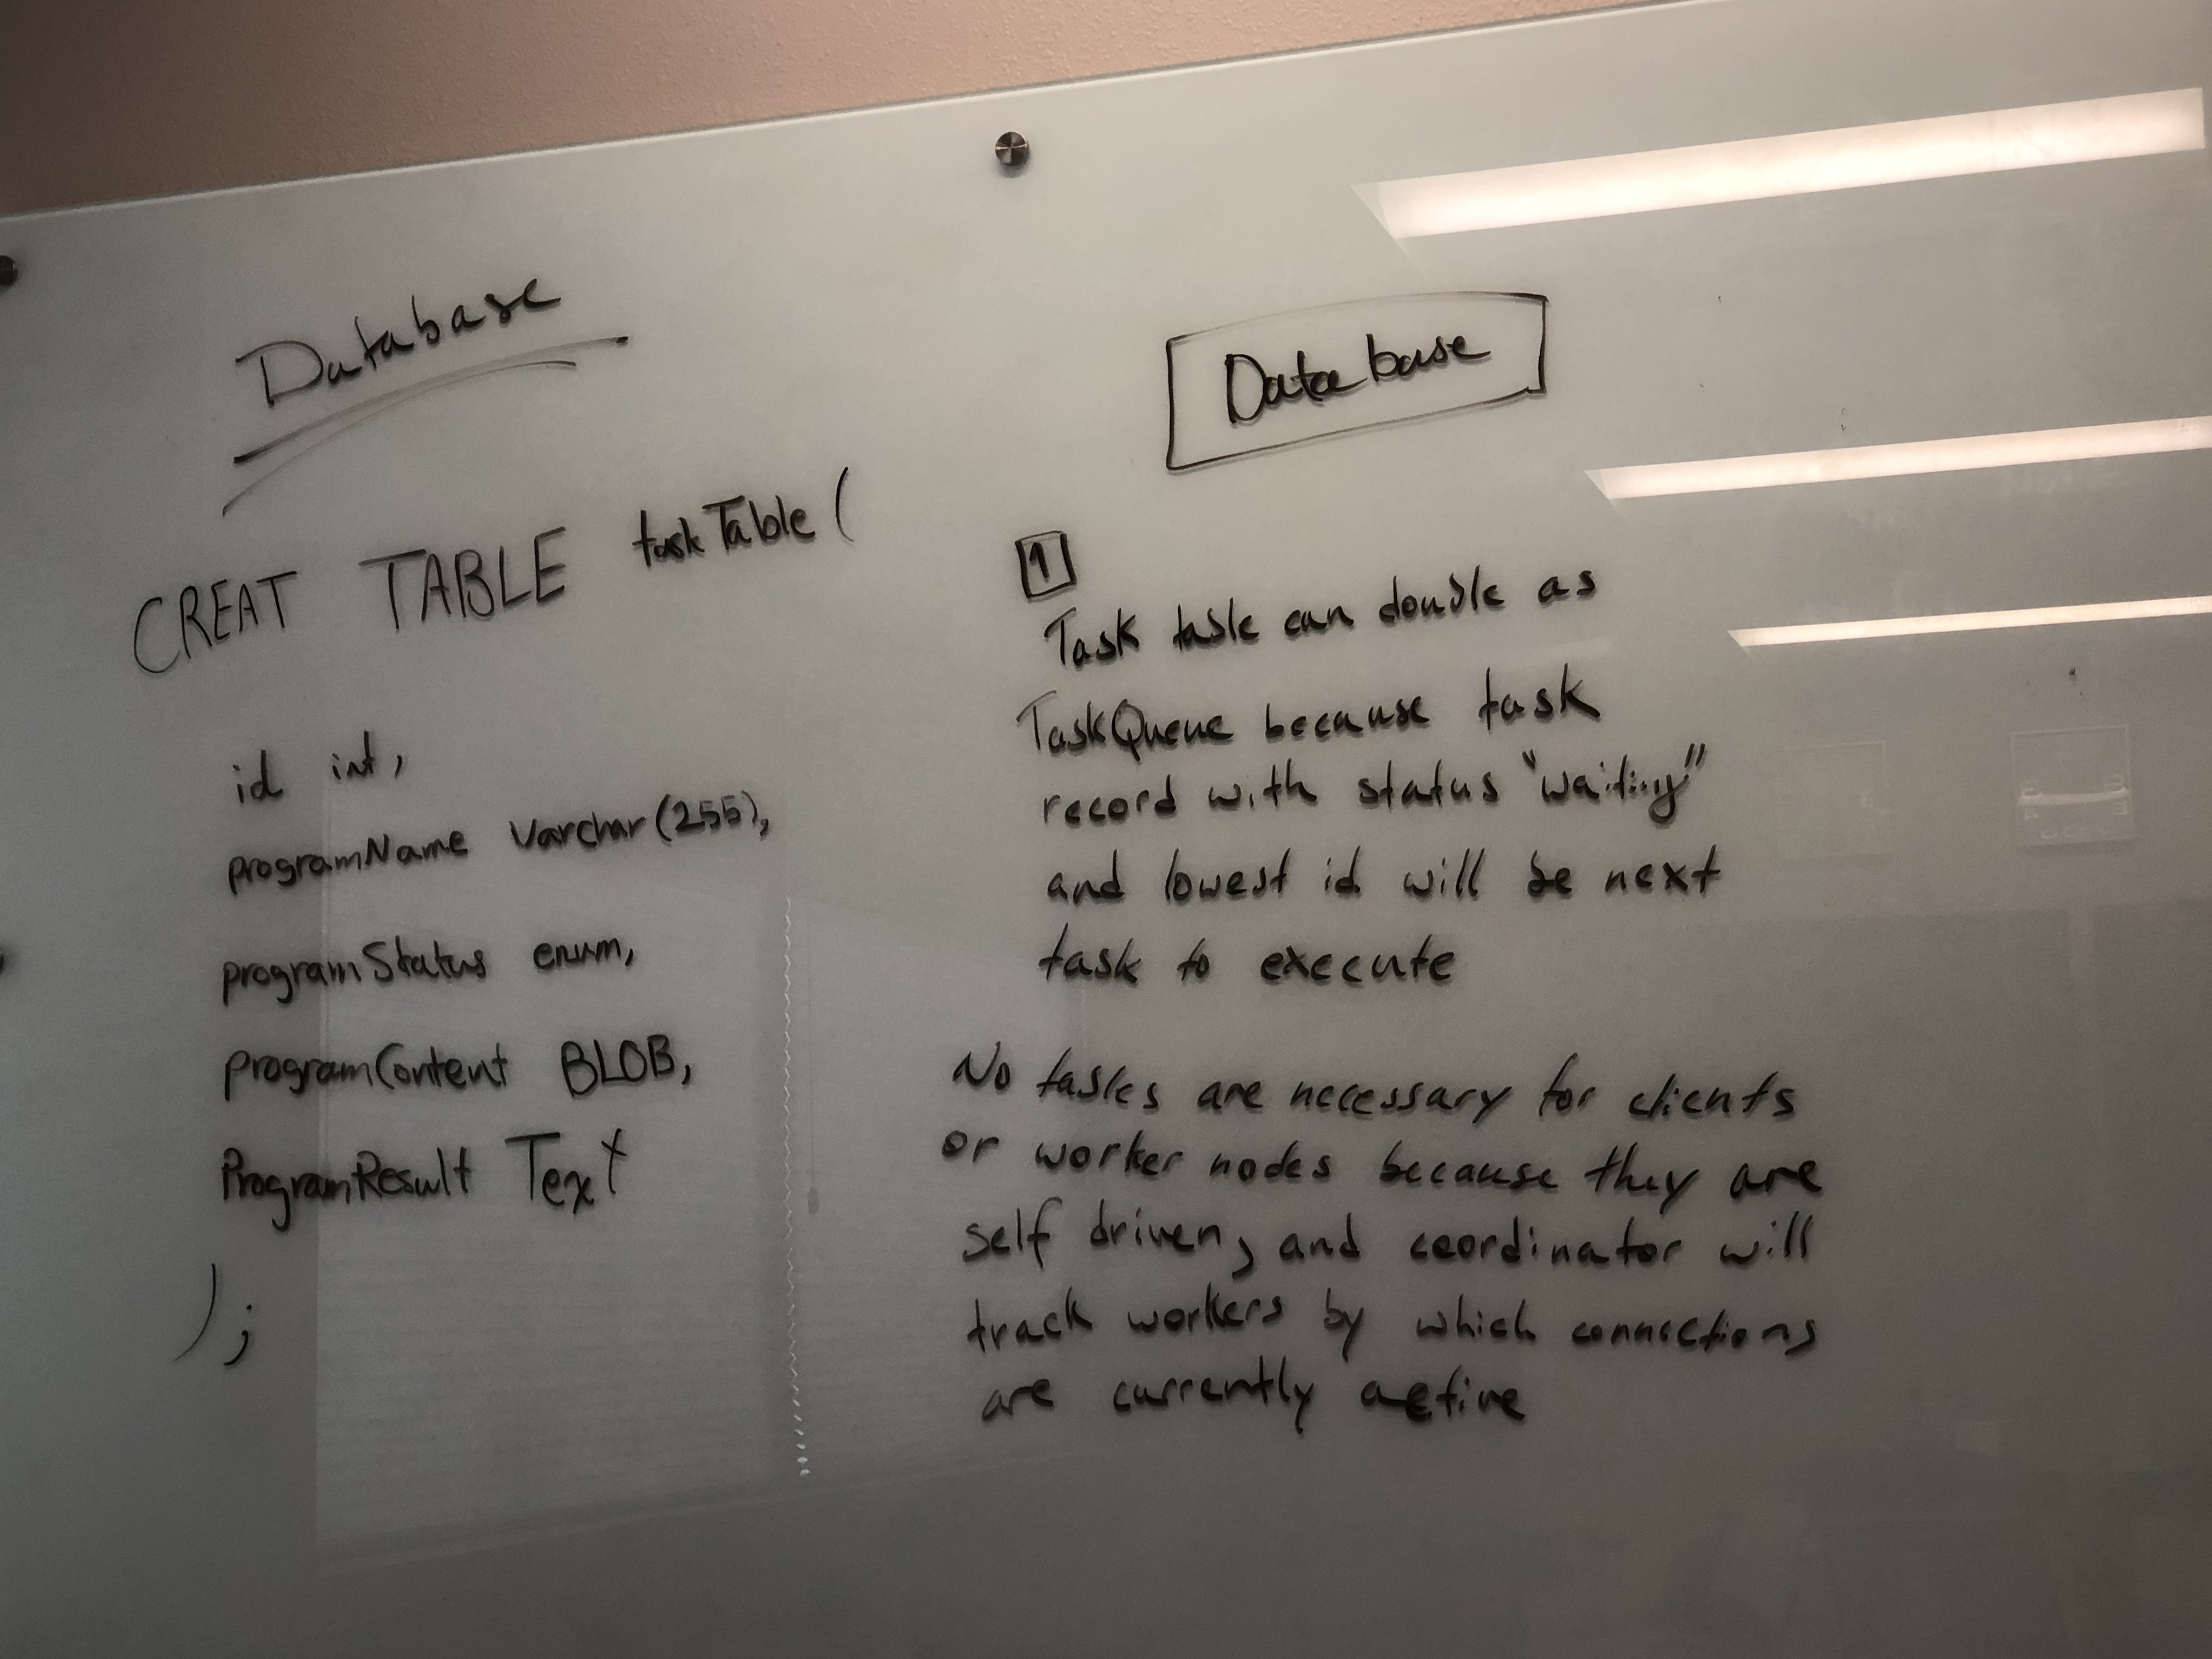 Database
CREAT TABLE taskTable (
id int,
programName Varchar(255),
programStatus enum,
programContent BLOB,
ProgramResult Text
);
Database
1
Task table can double as
TaskQueue because task
record with status "waiting"
and lowest id will be next
task to execute
No tasks are necessary for clients
or worker nodes because they are
self driven, and coordinator will
track workers by which connections
are currently active